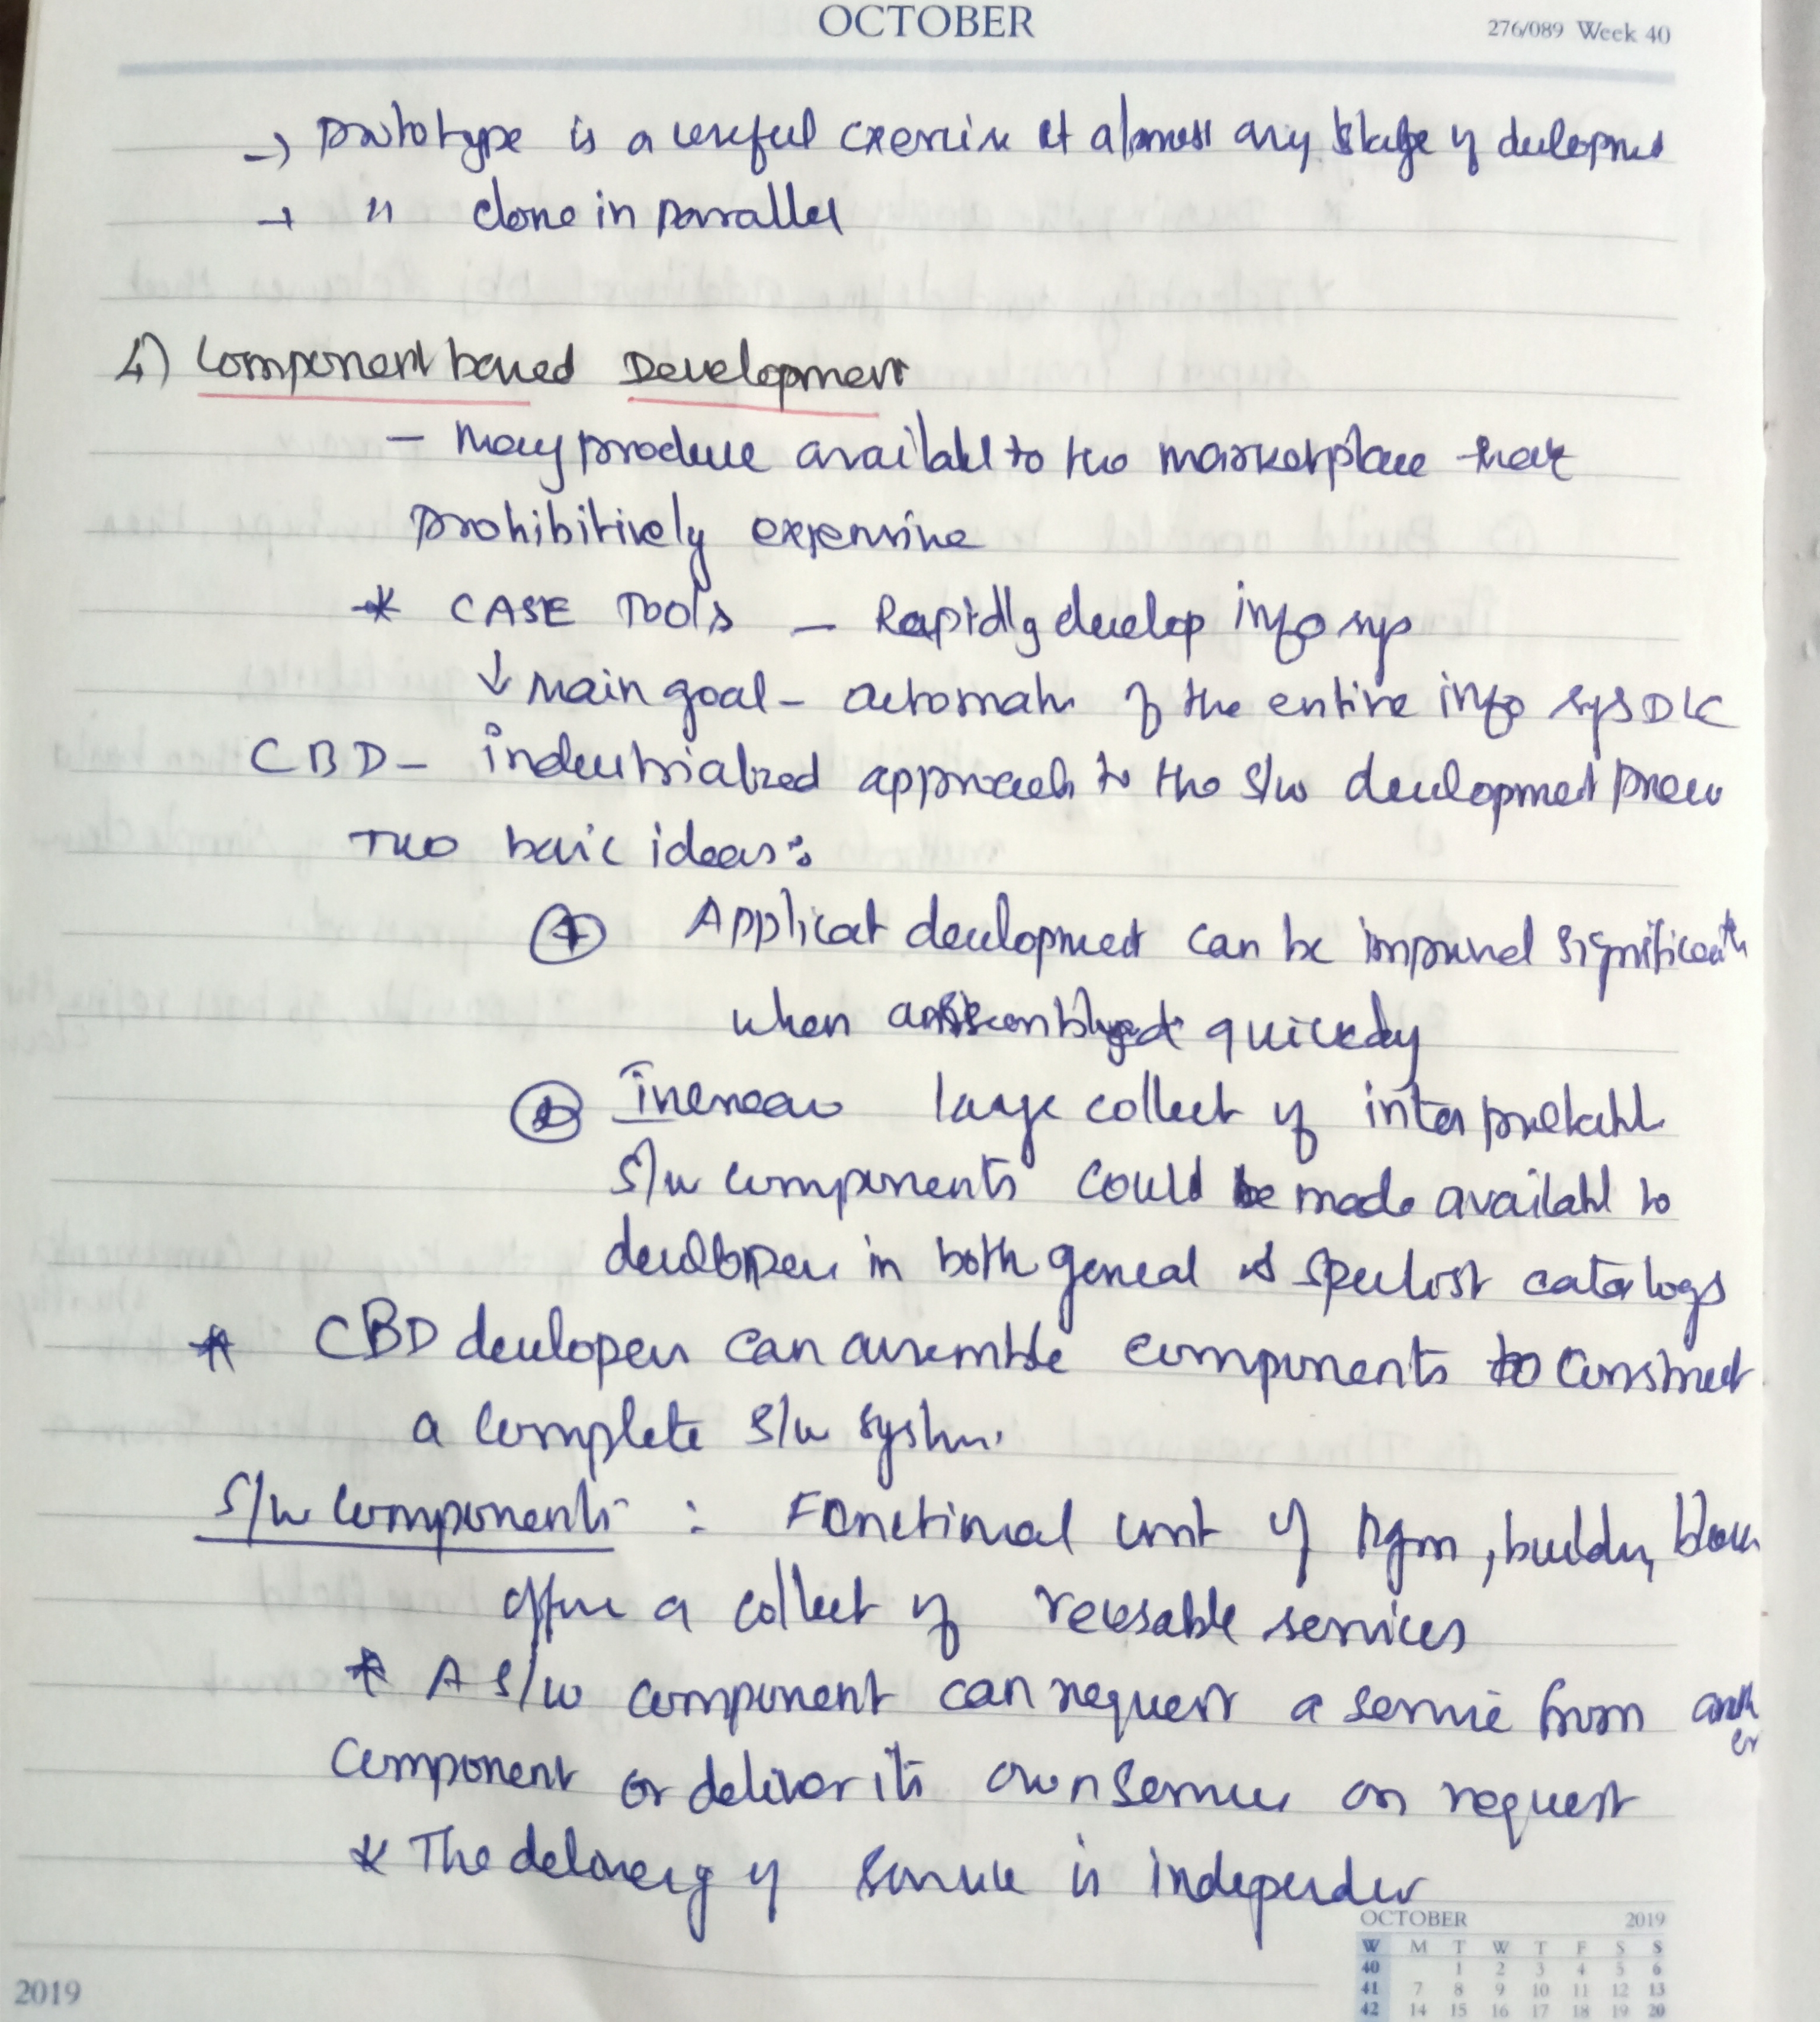 OCTOBER
276/089 Week 40
→ prototype is a useful exercise at almost any stage of developmet
→ " done in parallel
4) Component based Development
- may produce available to the marketplace that
prohibitively expensive
* CASE Tools - Rapidly develop info sys
↓ main goal - automatn of the entire info sysDLC
CBD - industrialized approach to the s/w developmet process
Two basic ideas:
① Applicat development can be improved significantly
when assembled quickly
② Increase large collect of inter
S/w components could be made available to
developers in both general & specialist catalogs
* CBD developers can assemble components to construct
a complete S/w system.
S/w components : Functional unit of pgm, buildng blocks
offers a collect of reusable services
* A s/w component can request a service from anoth
er
component or deliver its own services on request
* The delivery of service is independet
OCTOBER 2019
W M T W T F S S
40 1 2 3 4 5 6
41 7 8 9 10 11 12 13
42 14 15 16 17 18 19 20
2019